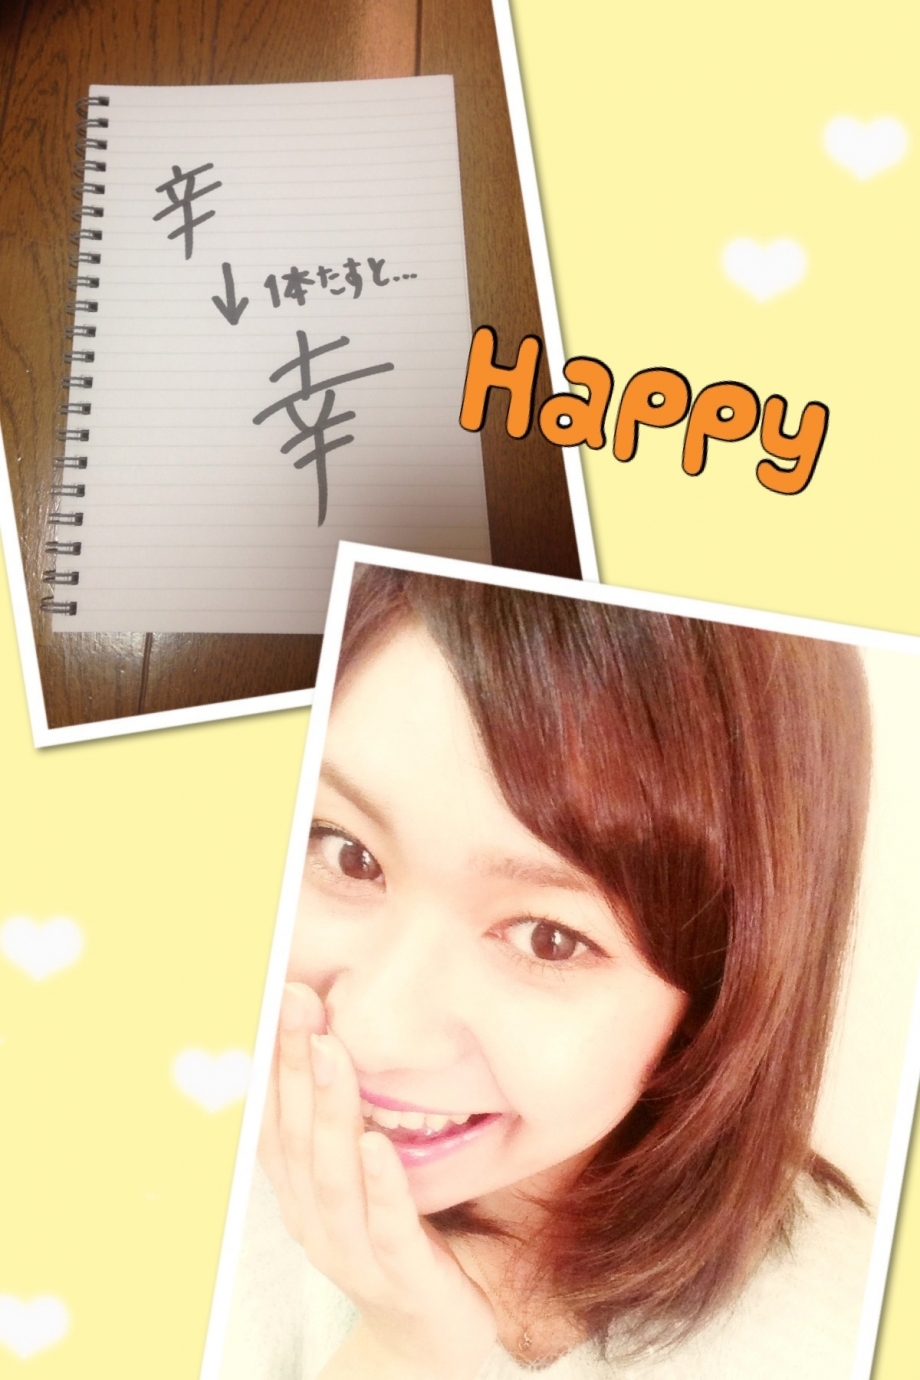 辛
↓1本たすと...
幸
Happy